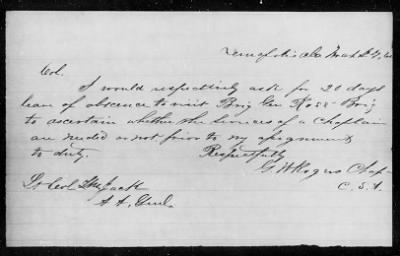 Demopolis Ala March 4, 64
Col.
I would respectively ask for 20 days
leave of absence to visit Brig Gen Ross' Brig
to ascertain whether the services of a Chaplain
are needed or not prior to my assignment
to duty.
Respectfully
G. W. Rogers Chap-
C. S. A.
Lt Col T M Jack
A. A. Genl.